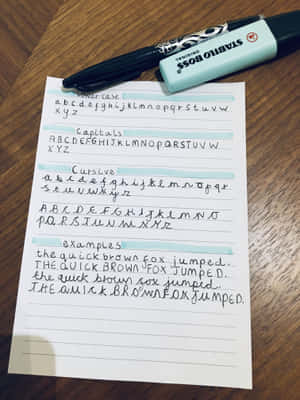 STABILO BOSS
ORIGINAL
lowercase
a b c d e f g h i j k l m n o p q r s t u v w
x y z
Capitals
A B C D E F G H I J K L M N O P Q R S T U V W
X Y Z
Cursive
a b c d e f g h i j k l m n o p q r
s t u v w x y z
A B C D E F G H I J K L M N O
P Q R S T U V W X Y Z
examples
the quick brown fox jumped.
THE QUICK BROWN FOX JUMPED.
the quick brown fox jumped.
THE QUICK BROWN FOX JUMPED.